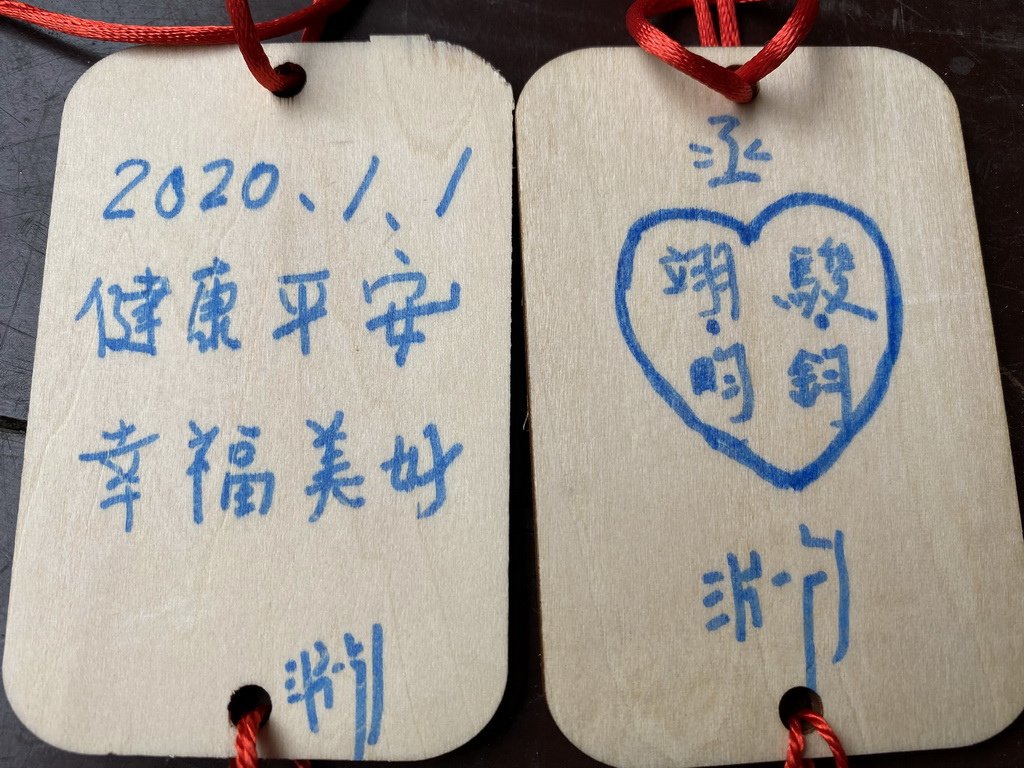 2020、1、1
健康平安
幸福美好
丞
翊 駿
昀 鈞